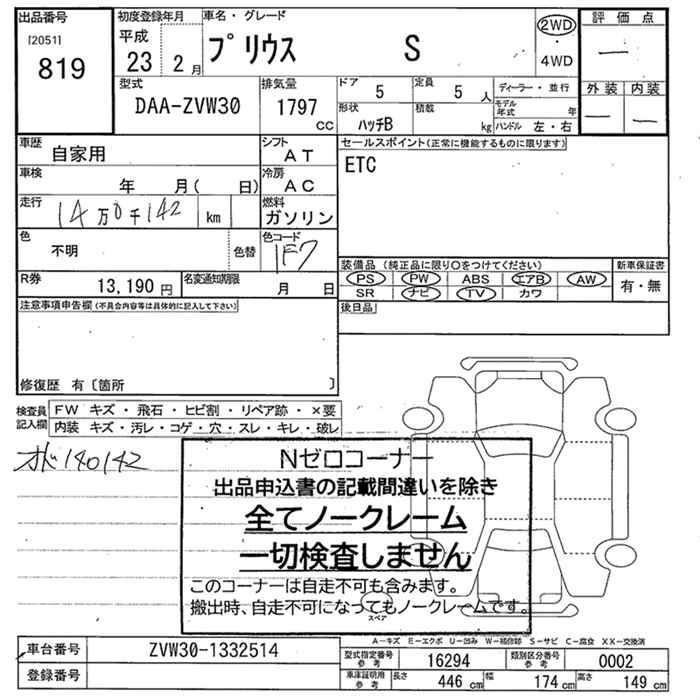 出品番号
[2051]
819
初度登録年月
平成
23 2月
車名・グレード
プリウス S
2WD
・
4WD
評価点
―
外装 内装
― ―
型式
DAA-ZVW30
排気量
1797
CC
ドア 5
定員 5 人
形状 ハッチB
積載 kg
ディーラー・並行
モデル年式 年
ハンドル 左・右
車歴
自家用
シフト
AT
車検
年 月( 日)
冷房
AC
走行
14万0千142 km
燃料
ガソリン
色
不明
色替
色コード
1F7
R券
13,190 円
名変通知期限
月 日
セールスポイント(正常に機能するものに限ります)
ETC
装備品 (純正品に限り〇をつけてください)
PS PW ABS エアB AW
SR ナビ TV カワ
新車保証書
有・無
後日品
注意事項申告欄(不具合内容等は具体的に記入して下さい)
修復歴 有〔箇所 〕
検査員記入欄
FW キズ・飛石・ヒビ割・リペア跡・×要
内装 キズ・汚レ・コゲ・穴・スレ・キレ・破レ
140142
Nゼロコーナー
出品申込書の記載間違いを除き
全てノークレーム
一切検査しません
このコーナーは自走不可も含みます。
搬出時、自走不可になってもノークレームです。
スペア
A-キズ E-エクボ U-凹み W-補修跡 S-サビ C-腐食 XX-交換済
車台番号
ZVW30-1332514
登録番号
型式指定番号
参考
16294
類別区分番号
参考
0002
車庫証明用
参考
長さ 446 cm
幅 174 cm
高さ 149 cm